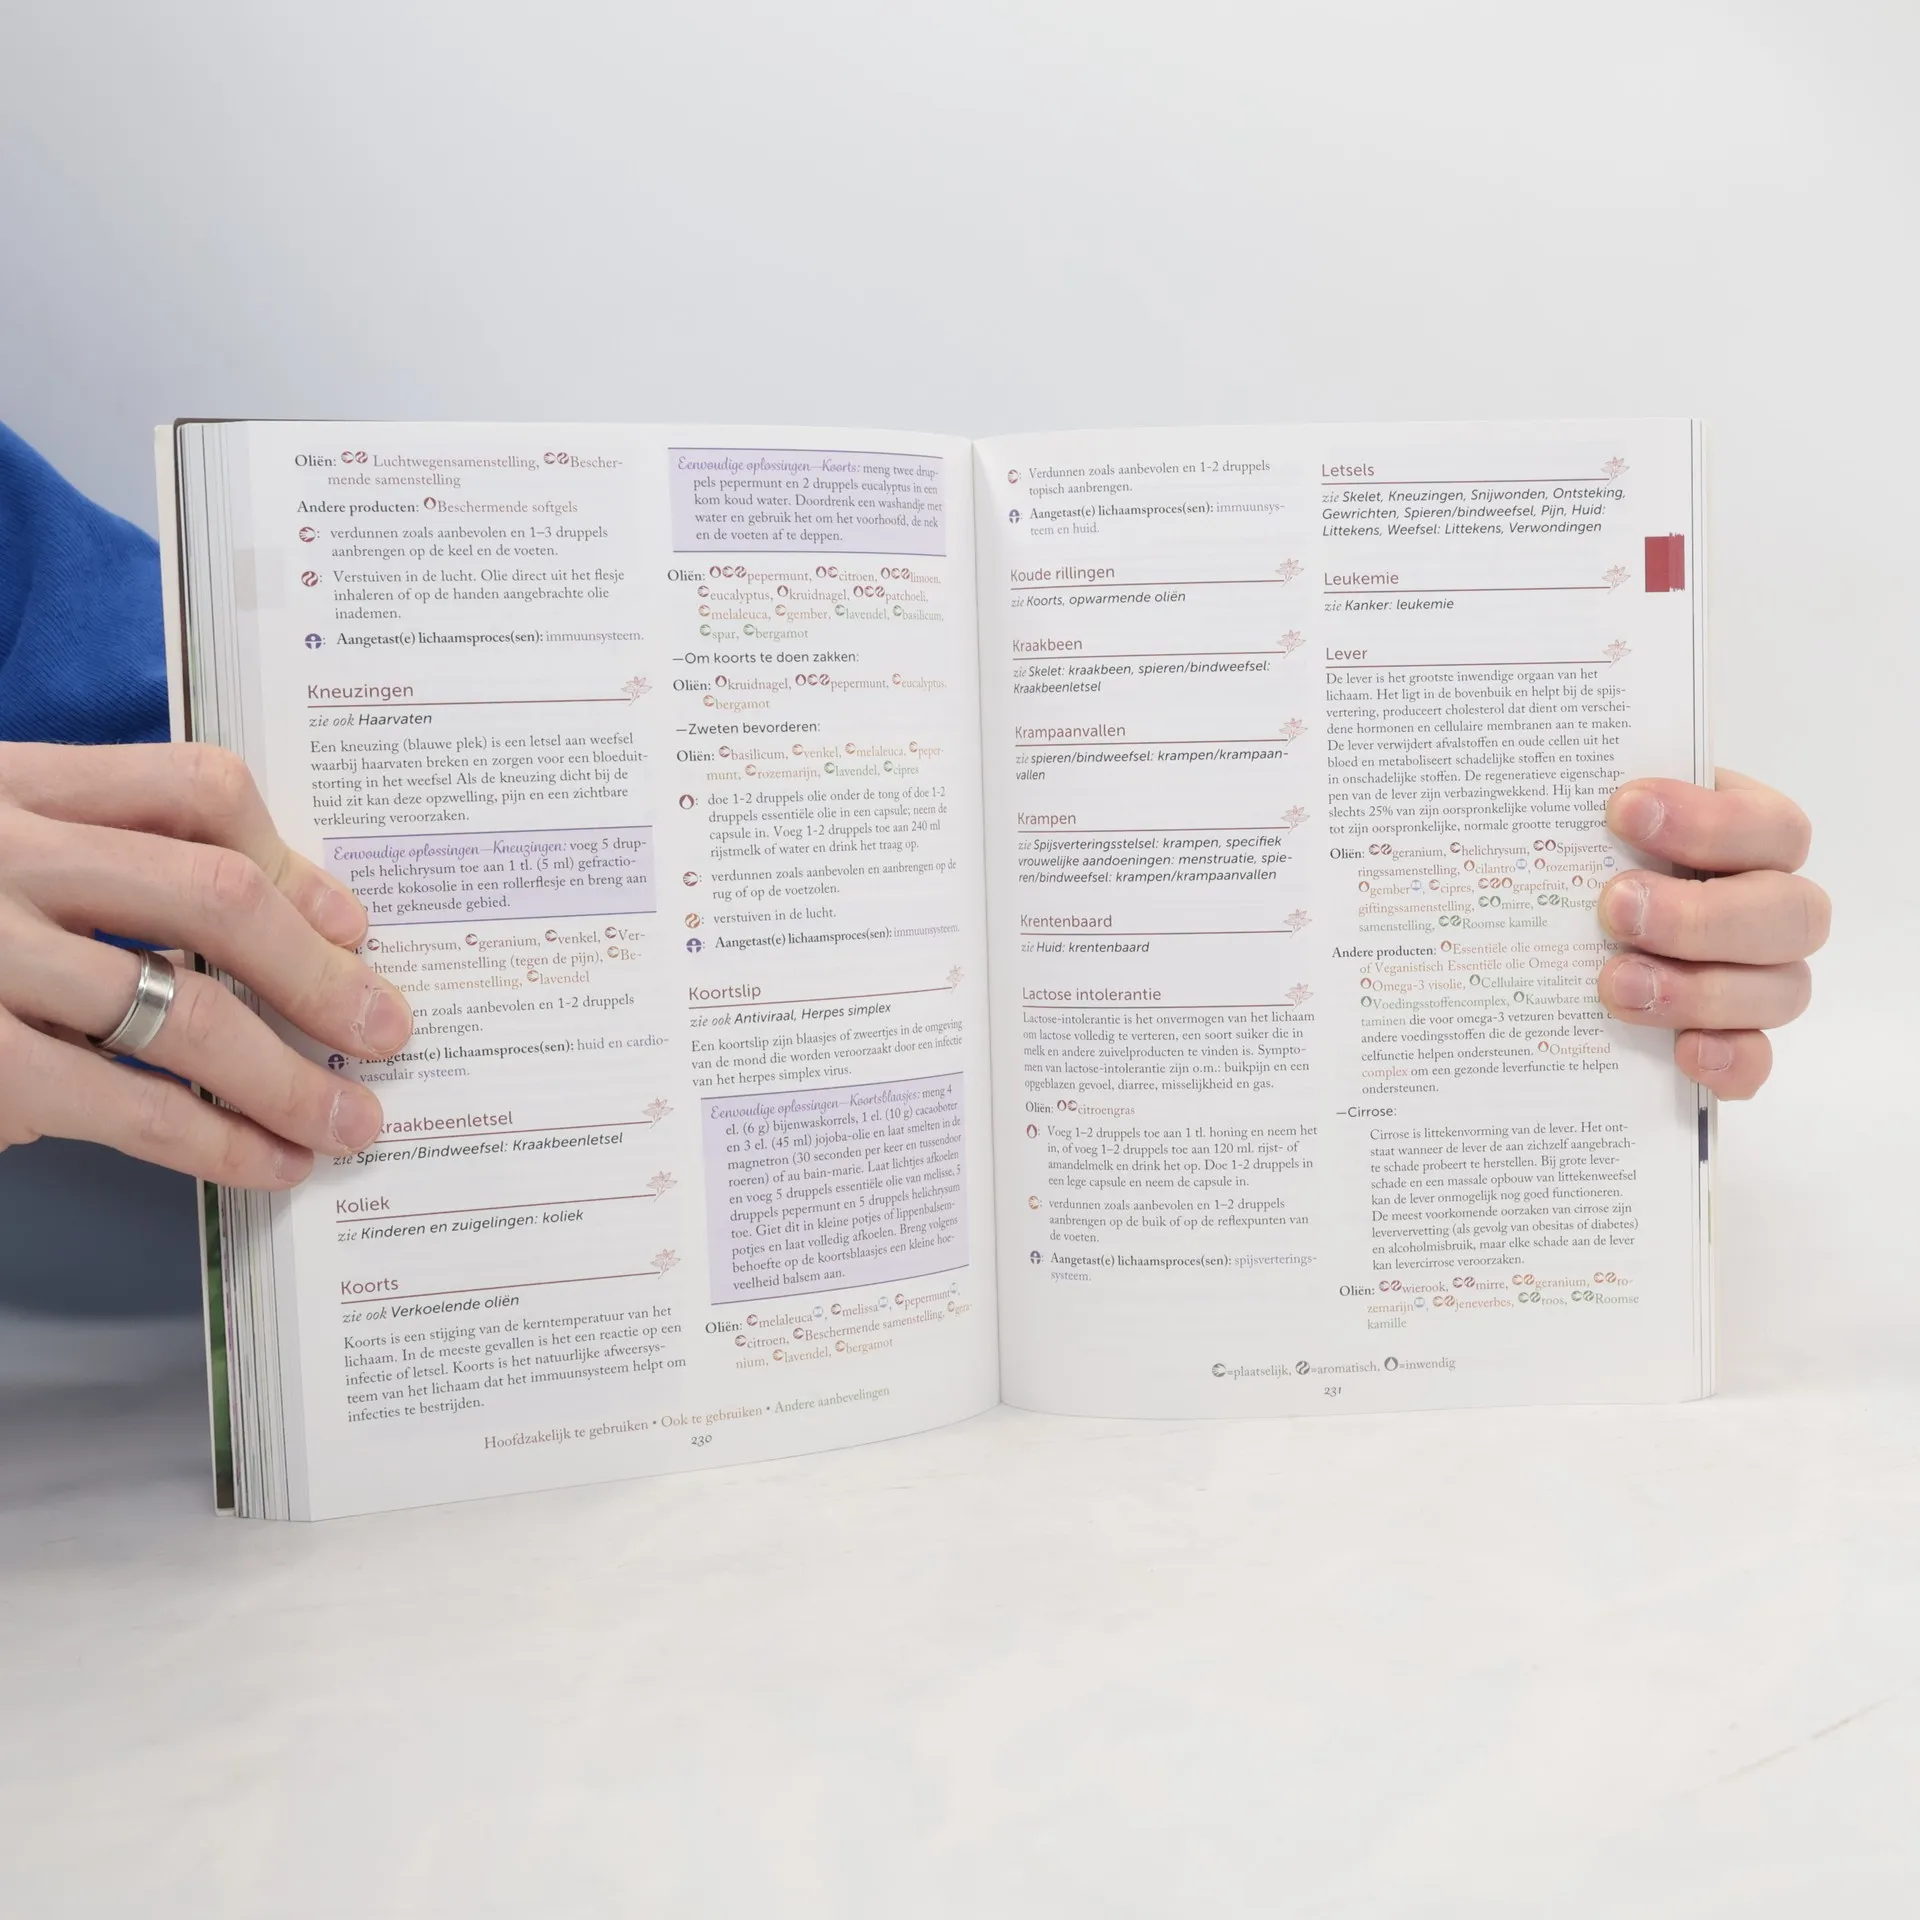 Oliën: Luchtwegensamenstelling, Bescher-
mende samenstelling
Andere producten: Beschermende softgels
: verdunnen zoals aanbevolen en 1–3 druppels
aanbrengen op de keel en de voeten.
: Verstuiven in de lucht. Olie direct uit het flesje
inhaleren of op de handen aangebrachte olie
inademen.
: Aangetast(e) lichaamsproces(sen): immuunsysteem.
Kneuzingen
zie ook Haarvaten
Een kneuzing (blauwe plek) is een letsel aan weefsel
waarbij haarvaten breken en zorgen voor een bloeduit-
storting in het weefsel Als de kneuzing dicht bij de
huid zit kan deze opzwelling, pijn en een zichtbare
verkleuring veroorzaken.
Eenvoudige oplossingen—Kneuzingen: voeg 5 drup-
pels helichrysum toe aan 1 tl. (5 ml) gefractio-
neerde kokosolie in een rollerflesje en breng aan
het gekneusde gebied.
helichrysum, geranium, venkel, Ver-
samenstelling (tegen de pijn), Be-
samenstelling, lavendel
zoals aanbevolen en 1-2 druppels
Aangetast(e) lichaamsproces(sen): huid en cardio-
vasculair systeem.
kraakbeenletsel
zie Spieren/Bindweefsel: Kraakbeenletsel
Koliek
zie Kinderen en zuigelingen: koliek
Koorts
zie ook Verkoelende oliën
Koorts is een stijging van de kerntemperatuur van het
lichaam. In de meeste gevallen is het een reactie op een
infectie of letsel. Koorts is het natuurlijke afweersys-
teem van het lichaam dat het immuunsysteem helpt om
infecties te bestrijden.
Eenvoudige oplossingen—Koorts: meng twee drup-
pels pepermunt en 2 druppels eucalyptus in een
kom koud water. Doordrenk een washandje met
water en gebruik het om het voorhoofd, de nek
en de voeten af te deppen.
Oliën: pepermunt, citroen, limoen,
eucalyptus, kruidnagel, patchoeli,
melaleuca, gember, lavendel, basilicum,
spar, bergamot
—Om koorts te doen zakken:
Oliën: kruidnagel, pepermunt, eucalyptus,
bergamot
—Zweten bevorderen:
Oliën: basilicum, venkel, melaleuca, peper-
munt, rozemarijn, lavendel, cipres
: doe 1-2 druppels olie onder de tong of doe 1-2
druppels essentiële olie in een capsule; neem de
capsule in. Voeg 1-2 druppels toe aan 240 ml
rijstmelk of water en drink het traag op.
: verdunnen zoals aanbevolen en aanbrengen op de
rug of op de voetzolen.
: verstuiven in de lucht.
: Aangetast(e) lichaamsproces(sen): immuunsysteem.
Koortslip
zie ook Antiviraal, Herpes simplex
Een koortslip zijn blaasjes of zweertjes in de omgeving
van de mond die worden veroorzaakt door een infectie
van het herpes simplex virus.
Eenvoudige oplossingen—Koortsblaasjes: meng 4
el. (6 g) bijenwaskorrels, 1 el. (10 g) cacaoboter
en 3 el. (45 ml) jojoba-olie en laat smelten in de
magnetron (30 seconden per keer en tussendoor
roeren) of au bain-marie. Laat lichtjes afkoelen
en voeg 5 druppels essentiële olie van melisse, 5
druppels pepermunt en 5 druppels helichrysum
toe. Giet dit in kleine potjes of lippenbalsem-
potjes en laat volledig afkoelen. Breng volgens
behoefte op de koortsblaasjes een kleine hoe-
veelheid balsem aan.
Oliën: melaleuca, melissa, pepermunt,
citroen, Beschermende samenstelling, gera-
nium, lavendel, bergamot
Hoofdzakelijk te gebruiken • Ook te gebruiken • Andere aanbevelingen
230
: Verdunnen zoals aanbevolen en 1-2 druppels
topisch aanbrengen.
: Aangetast(e) lichaamsproces(sen): immuunsys-
teem en huid.
Koude rillingen
zie Koorts, opwarmende oliën
Kraakbeen
zie Skelet: kraakbeen, spieren/bindweefsel:
Kraakbeenletsel
Krampaanvallen
zie spieren/bindweefsel: krampen/krampaan-
vallen
Krampen
zie Spijsverteringsstelsel: krampen, specifiek
vrouwelijke aandoeningen: menstruatie, spie-
ren/bindweefsel: krampen/krampaanvallen
Krentenbaard
zie Huid: krentenbaard
Lactose intolerantie
Lactose-intolerantie is het onvermogen van het lichaam
om lactose volledig te verteren, een soort suiker die in
melk en andere zuivelproducten te vinden is. Sympto-
men van lactose-intolerantie zijn o.m.: buikpijn en een
opgeblazen gevoel, diarree, misselijkheid en gas.
Oliën: citroengras
: Voeg 1–2 druppels toe aan 1 tl. honing en neem het
in, of voeg 1–2 druppels toe aan 120 ml. rijst- of
amandelmelk en drink het op. Doe 1-2 druppels in
een lege capsule en neem de capsule in.
: verdunnen zoals aanbevolen en 1–2 druppels
aanbrengen op de buik of op de reflexpunten van
de voeten.
: Aangetast(e) lichaamsproces(sen): spijsverterings-
systeem.
Letsels
zie Skelet, Kneuzingen, Snijwonden, Ontsteking,
Gewrichten, Spieren/bindweefsel, Pijn, Huid:
Littekens, Weefsel: Littekens, Verwondingen
Leukemie
zie Kanker: leukemie
Lever
De lever is het grootste inwendige orgaan van het
lichaam. Het ligt in de bovenbuik en helpt bij de spijs-
vertering, produceert cholesterol dat dient om verschei-
dene hormonen en cellulaire membranen aan te maken.
De lever verwijdert afvalstoffen en oude cellen uit het
bloed en metaboliseert schadelijke stoffen en toxines
in onschadelijke stoffen. De regeneratieve eigenschap-
pen van de lever zijn verbazingwekkend. Hij kan met
slechts 25% van zijn oorspronkelijke volume
tot zijn oorspronkelijke, normale grootte
Oliën: geranium, helichrysum, Spijsverte-
ringssamenstelling, cilantro, rozemarijn,
gember, cipres, grapefruit,
giftingssamenstelling, mirre,
samenstelling, Roomse kamille
Andere producten: Essentiële olie omega complex
of Veganistisch Essentiële olie Omega
Omega-3 visolie, Cellulaire vitaliteit
Voedingsstoffencomplex, Kauwbare
taminen die voor omega-3 vetzuren bevatten
andere voedingsstoffen die de gezonde lever-
celfunctie helpen ondersteunen. Ontgiftend
complex om een gezonde leverfunctie te helpen
ondersteunen.
—Cirrose:
Cirrose is littekenvorming van de lever. Het ont-
staat wanneer de lever de aan zichzelf aangebrach-
te schade probeert te herstellen. Bij grote lever-
schade en een massale opbouw van littekenweefsel
kan de lever onmogelijk nog goed functioneren.
De meest voorkomende oorzaken van cirrose zijn
leververvetting (als gevolg van obesitas of diabetes)
en alcoholmisbruik, maar elke schade aan de lever
kan levercirrose veroorzaken.
Oliën: wierook, mirre, geranium, ro-
zemarijn, jeneverbes, roos, Roomse
kamille
=plaatselijk, =aromatisch, =inwendig
231